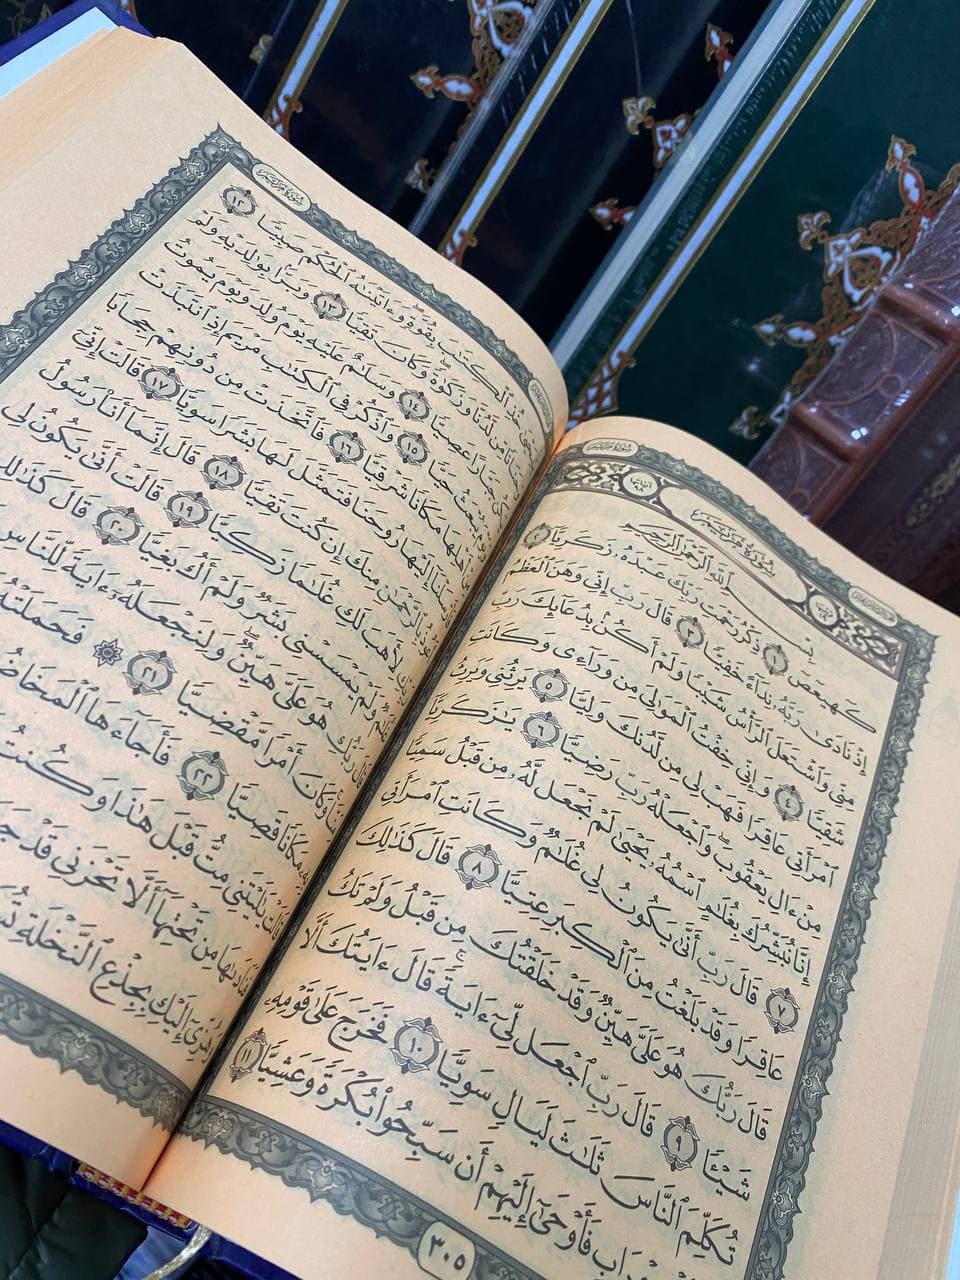 سُورَةُ مَرْيَمَ
الجزء السادس عشر
سُورَةُ مَرْيَمَ
آياتها ٩٨
بِسْمِ ٱللَّهِ ٱلرَّحْمَٰنِ ٱلرَّحِيمِ
كٓهيعٓصٓ ١ ذِكْرُ رَحْمَتِ رَبِّكَ عَبْدَهُۥ زَكَرِيَّآ ٢
إِذْ نَادَىٰ رَبَّهُۥ نِدَآءً خَفِيًّا ٣ قَالَ رَبِّ إِنِّي وَهَنَ ٱلْعَظْمُ
مِنِّي وَٱشْتَعَلَ ٱلرَّأْسُ شَيْبًا وَلَمْ أَكُنۢ بِدُعَآئِكَ رَبِّ
شَقِيًّا ٤ وَإِنِّي خِفْتُ ٱلْمَوَٰلِيَ مِن وَرَآءِي وَكَانَتِ
ٱمْرَأَتِي عَاقِرًا فَهَبْ لِي مِن لَّدُنكَ وَلِيًّا ٥ يَرِثُنِي وَيَرِثُ
مِنْ ءَالِ يَعْقُوبَ ۖ وَٱجْعَلْهُ رَبِّ رَضِيًّا ٦ يَٰزَكَرِيَّآ
إِنَّا نُبَشِّرُكَ بِغُلَٰمٍ ٱسْمُهُۥ يَحْيَىٰ لَمْ نَجْعَل لَّهُۥ مِن قَبْلُ سَمِيًّا
٧ قَالَ رَبِّ أَنَّىٰ يَكُونُ لِي غُلَٰمٌ وَكَانَتِ ٱمْرَأَتِي
عَاقِرًا وَقَدْ بَلَغْتُ مِنَ ٱلْكِبَرِ عِتِيًّا ٨ قَالَ كَذَٰلِكَ
قَالَ رَبُّكَ هُوَ عَلَيَّ هَيِّنٌ وَقَدْ خَلَقْتُكَ مِن قَبْلُ وَلَمْ تَكُ
شَيْـًٔا ٩ قَالَ رَبِّ ٱجْعَل لِّيٓ ءَايَةً ۚ قَالَ ءَايَتُكَ أَلَّا
تُكَلِّمَ ٱلنَّاسَ ثَلَٰثَ لَيَالٍ سَوِيًّا ١٠ فَخَرَجَ عَلَىٰ قَوْمِهِۦ
فَأَوْحَىٰٓ إِلَيْهِمْ أَن سَبِّحُوا۟ بُكْرَةً وَعَشِيًّا ١١
٣٠٥
سُورَةُ مَرْيَمَ
خُذِ ٱلْكِتَٰبَ بِقُوَّةٍ ۖ وَءَاتَيْنَٰهُ ٱلْحُكْمَ صَبِيًّا ١٢
مِّن لَّدُنَّا وَزَكَوٰةً ۖ وَكَانَ تَقِيًّا ١٣ وَبَرًّۢا بِوَٰلِدَيْهِ وَلَمْ
جَبَّارًا عَصِيًّا ١٤ وَسَلَٰمٌ عَلَيْهِ يَوْمَ وُلِدَ وَيَوْمَ يَمُوتُ
يُبْعَثُ حَيًّا ١٥ وَٱذْكُرْ فِي ٱلْكِتَٰبِ مَرْيَمَ إِذِ ٱنتَبَذَتْ
أَهْلِهَا مَكَانًا شَرْقِيًّا ١٦ فَٱتَّخَذَتْ مِن دُونِهِمْ حِجَابًا
إِلَيْهَا رُوحَنَا فَتَمَثَّلَ لَهَا بَشَرًا سَوِيًّا ١٧ قَالَتْ إِنِّيٓ
بِٱلرَّحْمَٰنِ مِنكَ إِن كُنتَ تَقِيًّا ١٨ قَالَ إِنَّمَآ أَنَا۠ رَسُولُ
لِأَهَبَ لَكِ غُلَٰمًا زَكِيًّا ١٩ قَالَتْ أَنَّىٰ يَكُونُ لِي
وَلَمْ يَمْسَسْنِي بَشَرٌ وَلَمْ أَكُ بَغِيًّا ٢٠ قَالَ كَذَٰلِكِ
رَبُّكِ هُوَ عَلَيَّ هَيِّنٌ ۖ وَلِنَجْعَلَهُۥٓ ءَايَةً لِّلنَّاسِ
وَكَانَ أَمْرًا مَّقْضِيًّا ٢١ ۞ فَحَمَلَتْهُ
بِهِۦ مَكَانًا قَصِيًّا ٢٢ فَأَجَآءَهَا ٱلْمَخَاضُ
قَالَتْ يَٰلَيْتَنِي مِتُّ قَبْلَ هَٰذَا وَكُنتُ
فَنَادَىٰهَا مِن تَحْتِهَآ أَلَّا تَحْزَنِي قَدْ
وَهُزِّيٓ إِلَيْكِ بِجِذْعِ ٱلنَّخْلَةِ